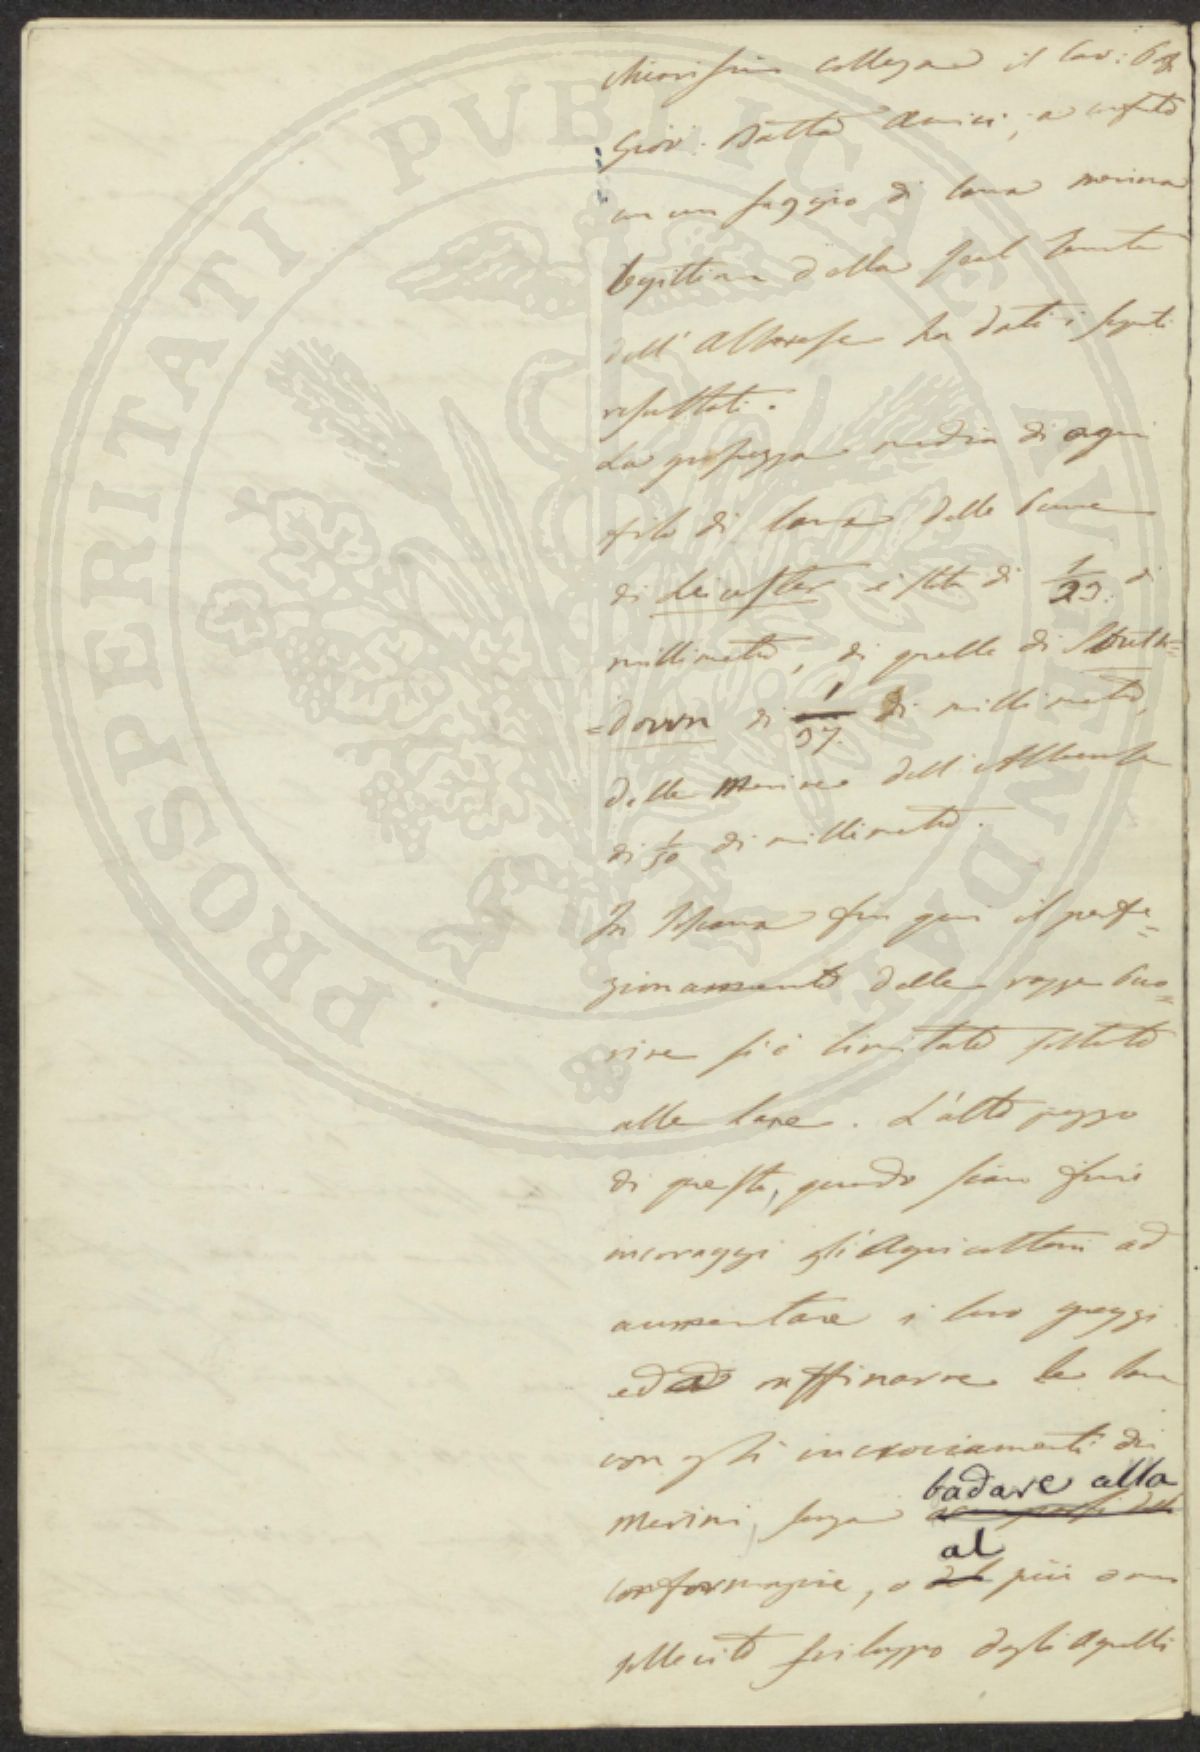 chiarissimo collega il Cav: Prof.
Giov: Batta Amici, a
un saggio di lana merina
legittima della Real Tenuta
dell'Alberese ha dati i seguti
resultati.
La grossezza media di ogni
filo di lana delle
di Leicester è stata di 1/29. di
millimetro, di quelle di South=
=down di 1/37. di millimetro,
delle Merine dell'Alberese
di 1/50 di millimetro.
In Toscana fin qui il perfe=
zionamento delle razze Peco=
rine si è limitato soltanto
alle lane. L'alto prezzo
di queste, quando siano fini
incoraggì gli Agricoltori ad
aumentare i loro greggi
ed a raffinarne le lane
con gli incrociamenti dei
badare alla
Merini, senza
al
conformazione, o del più o men
sollecito sviluppo degli Agnelli
PROSPERITATI PUBLICAE AUGENDAE